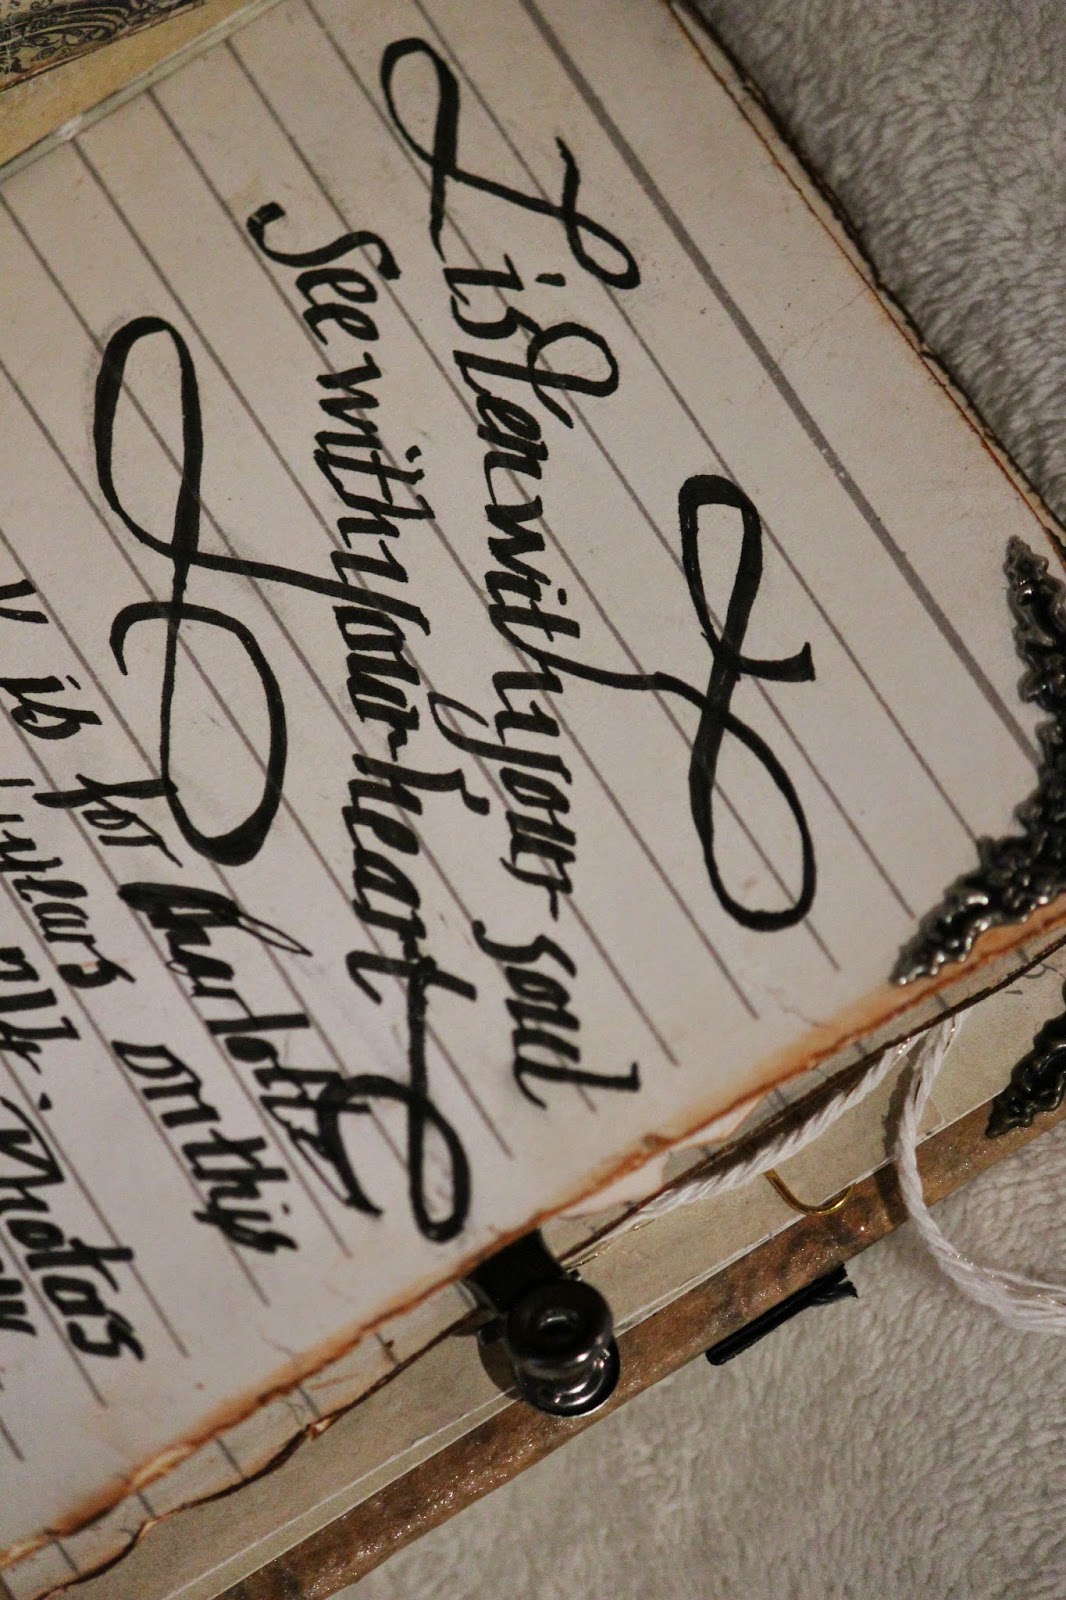 Listen with your soul
See with your heart
is for Charlotte
years on this